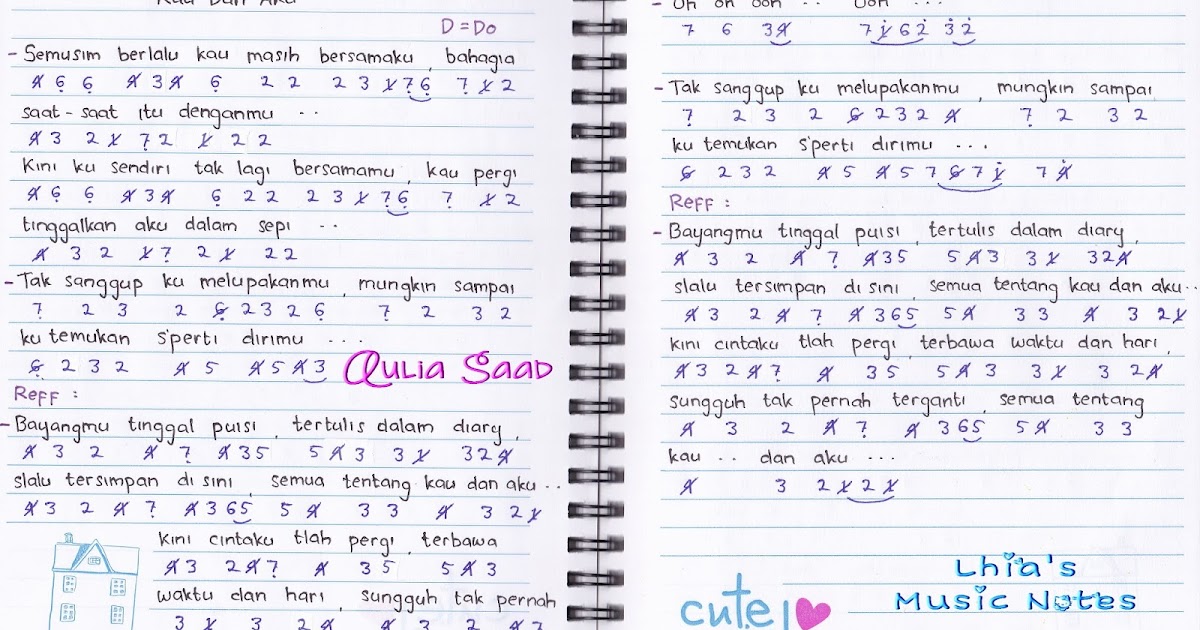 Kau Dan Aku
D = Do
- Semusim berlalu kau masih bersamaku, bahagia
4 6 6 4 3 4 6 2 2 2 3 1 7 6 7 1 2
saat - saat itu denganmu ..
4 3 2 1 7 2 1 2 2
Kini ku sendiri tak lagi bersamamu, kau pergi
4 6 6 4 3 4 6 2 2 2 3 1 7 6 7 1 2
tinggalkan aku dalam sepi ..
4 3 2 1 7 2 1 2 2
- Tak sanggup ku melupakanmu, mungkin sampai
7 2 3 2 6 2 3 2 6 7 2 3 2
ku temukan s'perti dirimu ...
6 2 3 2 4 5 4 5 4 3
Aulia Saad
Reff :
- Bayangmu tinggal puisi, tertulis dalam diary,
4 3 2 4 7 4 3 5 5 4 3 3 1 3 2 4
slalu tersimpan di sini, semua tentang kau dan aku ..
4 3 2 4 7 4 3 6 5 5 4 3 3 4 3 2 1
kini cintaku tlah pergi, terbawa
4 3 2 4 7 4 3 5 5 4 3
waktu dan hari, sungguh tak pernah
3 1 3 2 4 4 3 2 4 7
- Oh oh ooh .. Ooh ...
7 6 3 4 7 1 6 2 3 2
- Tak sanggup ku melupakanmu, mungkin sampai
7 2 3 2 6 2 3 2 4 7 2 3 2
ku temukan s'perti dirimu ...
6 2 3 2 4 5 4 5 7 6 7 1 7 4
Reff :
- Bayangmu tinggal puisi, tertulis dalam diary,
4 3 2 4 7 4 3 5 5 4 3 3 1 3 2 4
slalu tersimpan di sini, semua tentang kau dan aku ..
4 3 2 4 7 4 3 6 5 5 4 3 3 4 3 2 1
kini cintaku tlah pergi, terbawa waktu dan hari,
4 3 2 4 7 4 3 5 5 4 3 3 1 3 2 4
sungguh tak pernah terganti, semua tentang
4 3 2 4 7 4 3 6 5 5 4 3 3
kau .. dan aku ...
4 3 2 1 2 1
cute!
Lhia's
Music Notes